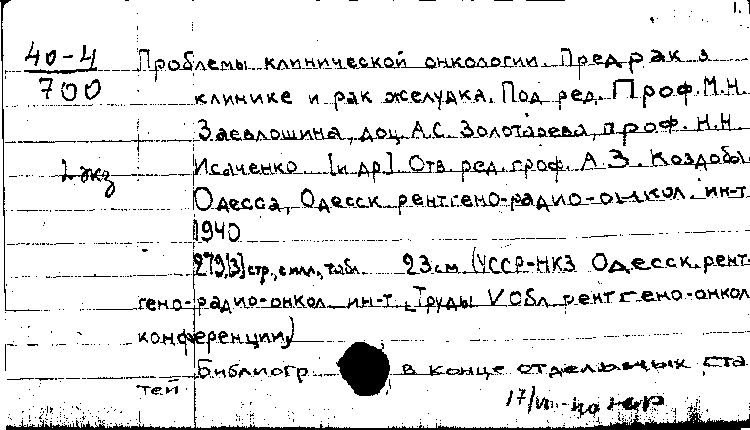 40-4
700
Проблемы клинической онкологии. Предрак в
клинике и рак желудка. Под ред. Проф. М.Н.
Заевлошина, доц. А.С. Золотарева, проф. Н.Н.
1 экз
Исаченко [и др]. Отв. ред. проф. А.З. Коздобы.
Одесса, Одесск. рентгено-радио-онкол. ин-т.
1940
279,[3] стр., с илл., табл. 23 см. (УССР-НКЗ Одесск. рент-
гено-радио-онкол. ин-т. Труды V Обл. рентгено-онкол.
конференции)
Библиогр. в конце отдельных ста
тей